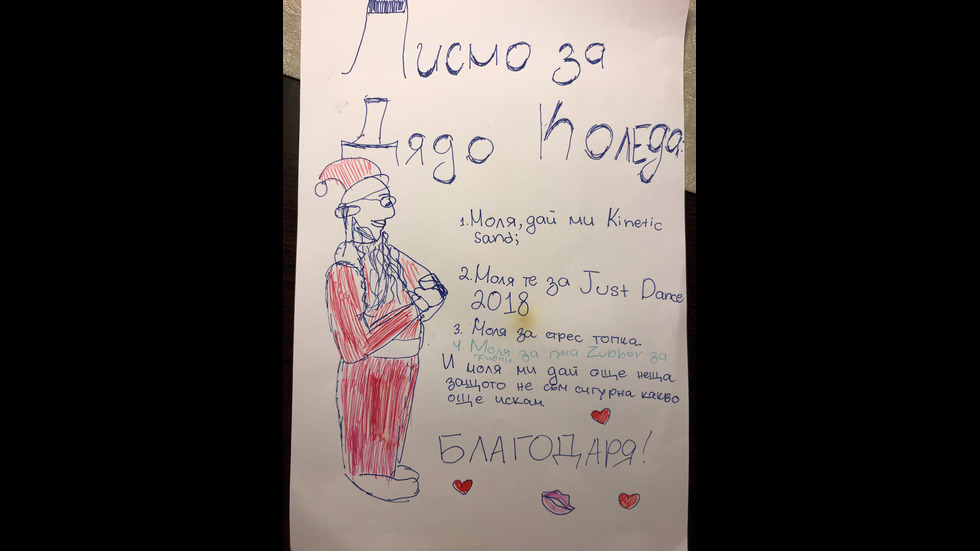 Писмо за
Дядо Коледа:
1. Моля, дай ми Kinetic
sand;
2. Моля те за Just Dance
2018
3. Моля за стрес топка.
4. Моля за гума Zubber за
гривни.
И моля ми дай още неща
защото не съм сигурна какво
още искам.
БЛАГОДАРЯ!